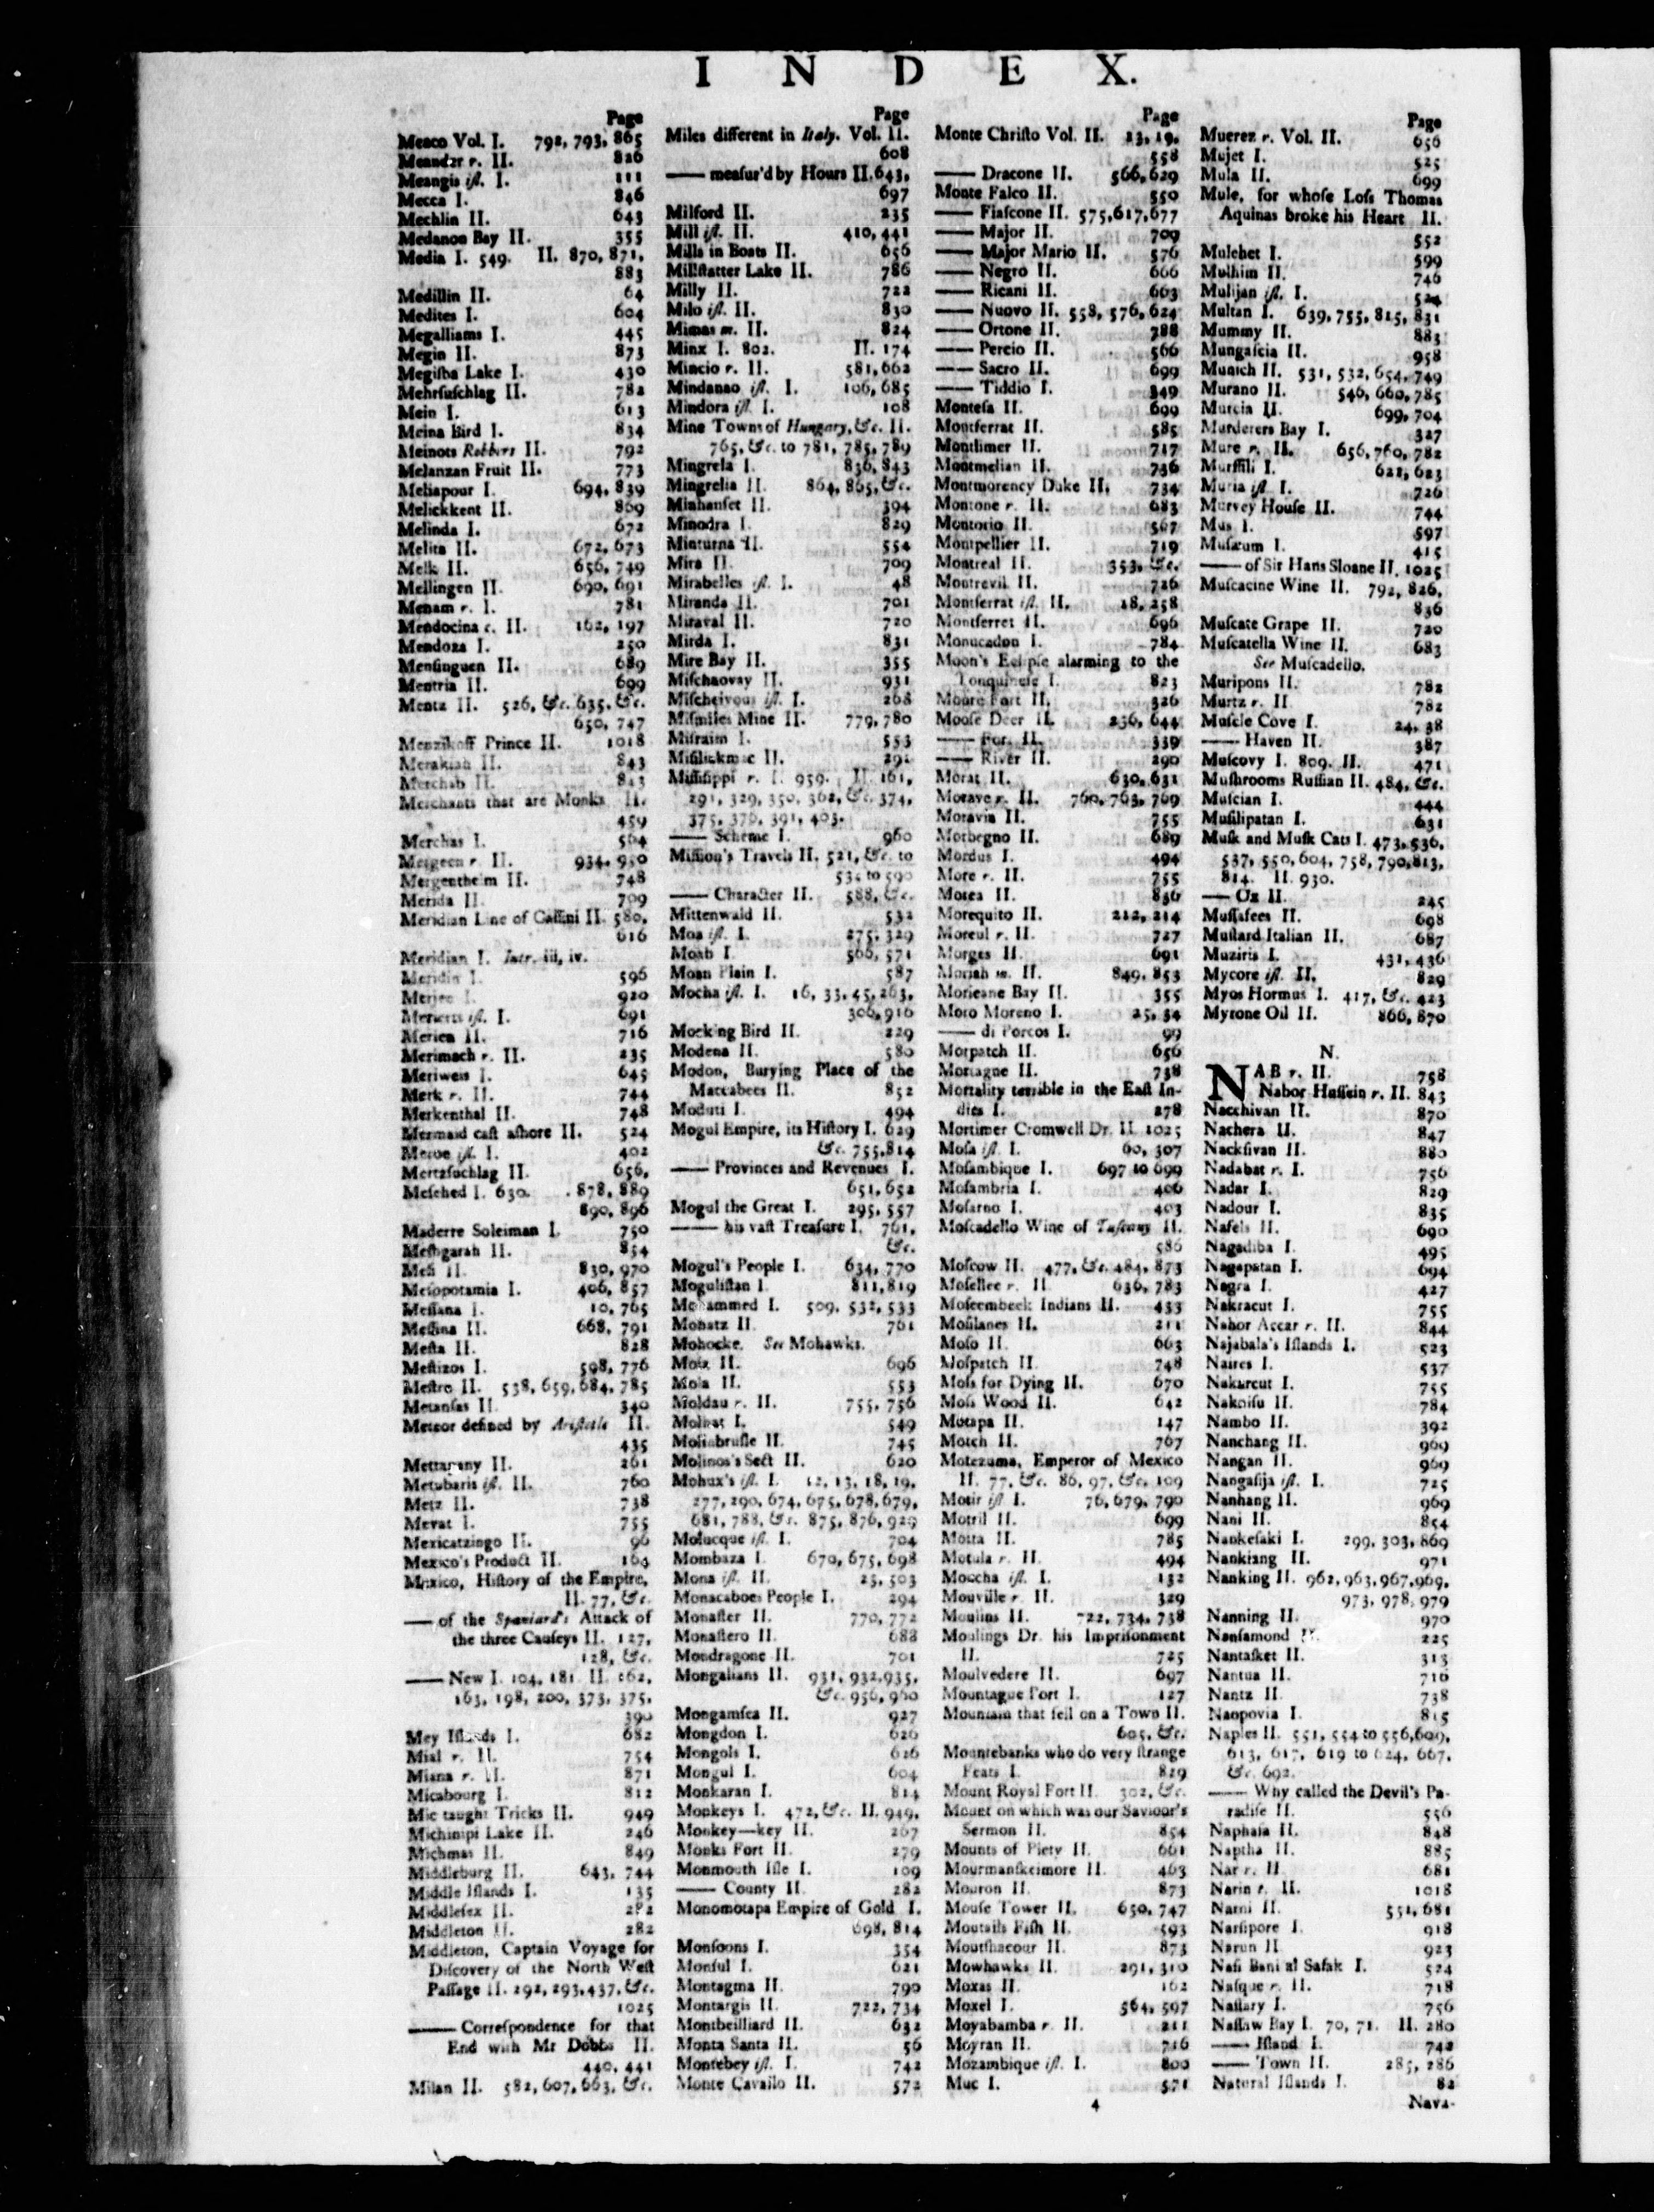 INDEX.
Page
Meaco Vol. I. 792, 793, 865
Meander r. II. 826
Meangis iſl. I. 111
Mecca I. 846
Mechlin II. 643
Medanoa Bay II. 355
Media I. 549. II. 870, 871,
883
Medillin II. 64
Medites I. 604
Megalliams I. 445
Megin II. 873
Megiſba Lake I. 430
Mehrſuſchlag II. 782
Mein I. 613
Meina Bird I. 834
Meinots Robbers II. 792
Melanzan Fruit II. 773
Meliapour I. 694, 839
Melickkent II. 869
Melinda I. 672
Melita II. 672, 673
Melk II. 656, 749
Mellingen II. 690, 691
Menam r. I. 781
Mendocina c. II. 162, 197
Mendoza I. 250
Menſinguen II. 689
Mentria II. 699
Mentz II. 526, &c. 635. &c.
650, 747
Menzikoff Prince II. 1018
Merakiah II. 843
Merchab II. 843
Merchants that are Monks II.
459
Merchas I. 564
Mergeen r. II. 934, 950
Mergentheim II. 748
Merida II. 709
Meridian Line of Caſſini II. 580,
616
Meridian I. Intr. iii, iv.
Meridin I. 596
Merjee I. 920
Merierts iſl. I. 691
Meriea II. 716
Merimach r. II. 235
Meriweis I. 645
Merk r. II. 744
Merkenthal II. 748
Mermaid caſt aſhore II. 524
Meroe iſl. I. 402
Mertzſuchlag II. 656,
Meſched I. 630. 878, 889
890, 896
Maderre Soleiman I. 750
Meſhgarah II. 854
Meſi II. 830, 970
Meſopotamia I. 406, 857
Meſſana I. 10, 765
Meſſina II. 668, 791
Meſta II. 828
Meſtizos I. 598, 776
Meſtre II. 538, 659, 684, 785
Metanſas II. 340
Meteor defined by Ariſtotle II.
435
Mettapany II. 261
Metubaris iſl. II. 760
Metz II. 738
Mevat I. 755
Mexicatzingo II. 96
Mexico's Product II. 164
Mexico, Hiſtory of the Empire,
II. 77, &c.
—— of the Spaniard's Attack of
the three Cauſeys II. 127,
128, &c.
—— New I. 104, 181. II. 162,
163, 198, 200, 373, 375,
390
Mey Iſlands I. 682
Mial r. II. 754
Miana r. II. 871
Micabourg I. 812
Mic taught Tricks II. 949
Michinipi Lake II. 246
Michmas II. 849
Middleburg II. 643, 744
Middle Iſlands I. 135
Middleſex II. 282
Middleton II. 282
Middleton, Captain Voyage for
Diſcovery of the North Weſt
Paſſage II. 292, 293, 437, &c.
1025
—— Correſpondence for that
End with Mr Dobbs II.
440, 441
Milan II. 582, 607, 663, &c.
Page
Miles different in Italy. Vol. II.
608
—— meaſur'd by Hours II. 643,
697
Milford II. 235
Mill iſl. II. 410, 441
Mills in Boats II. 656
Millſtatter Lake II. 786
Milly II. 722
Milo iſl. II. 830
Mimas m. II. 824
Minx I. 802. II. 174
Mincio r. II. 581, 662
Mindanao iſl. I. 106, 685
Mindora iſl. I. 108
Mine Towns of Hungary, &c. II.
765, &c. to 781, 785, 789
Mingrela I. 836, 843
Mingrelia II. 864, 865, &c.
Minhanſet II. 394
Minodra I. 829
Minturna II. 554
Mira II. 709
Mirabelles iſl. I. 48
Miranda II. 701
Miraval II. 720
Mirda I. 831
Mire Bay II. 355
Miſchaovay II. 931
Miſcheivous iſl. I. 268
Miſmiles Mine II. 779, 780
Miſraim I. 553
Miſſickmac II. 291
Miſſiſippi r. I. 959. II. 161,
291, 329, 350, 362, &c. 374,
375, 376, 391, 403.
—— Scheme I. 960
Miſſion's Travels II. 521, &c. to
534 to 590
—— Character II. 588, &c.
Mittenwald II. 532
Moa iſl. I. 275, 329
Moab I. 566, 571
Moan Plain I. 587
Mocha iſl. I. 16, 33, 45, 263,
306, 916
Mocking Bird II. 229
Modena II. 580
Modon, Burying Place of the
Maccabees II. 852
Moduti I. 494
Mogul Empire, its Hiſtory I. 629
&c. 755, 814
—— Provinces and Revenues I.
651, 652
Mogul the Great I. 295, 557
—— his vaſt Treaſure I. 761,
&c.
Mogul's People I. 634, 770
Moguliſtan I. 811, 819
Mohammed I. 509, 532, 533
Mohatz II. 761
Mohocke. See Mohawks.
Moix II. 696
Mola II. 553
Moldau r. II. 755, 756
Molhat I. 549
Molinbruſle II. 745
Molinos's Sect II. 620
Mohux's iſl. I. 12, 13, 18, 19,
277, 290, 674, 675, 678, 679,
681, 788, &c. 875, 876, 929
Molucque iſl. I. 704
Mombaza I. 670, 675, 698
Mona iſl. II. 25, 503
Monacaboes People I. 294
Monaſter II. 770, 772
Monaſtero II. 688
Mondragone II. 701
Mongalians II. 931, 932, 935,
&c. 956, 960
Mongamſea II. 927
Mongdon I. 626
Mongols I. 626
Mongul I. 604
Monkaran I. 814
Monkeys I. 472, &c. II. 949,
Monkey—key II. 267
Monks Fort II. 279
Monmouth Iſle I. 109
—— County II. 282
Monomotapa Empire of Gold I.
698, 814
Monſoons I. 354
Monſul I. 621
Montagma II. 790
Montargis II. 722, 734
Montbeilliard II. 632
Monta Santa II. 56
Montebey iſl. I. 742
Monte Cavallo II. 572
Page
Monte Chriſto Vol. II. 13, 19,
558
—— Dracone II. 566, 629
Monte Falco II. 550
—— Fiaſcone II. 575, 617, 677
—— Major II. 709
—— Major Mario II. 576
—— Negro II. 666
—— Ricani II. 663
—— Nuovo II. 558, 576, 624
—— Ortone II. 788
—— Percio II. 566
—— Sacro II. 699
—— Tiddio I. 349
Monteſa II. 699
Montferrat II. 585
Montlimer II. 717
Montmelian II. 736
Montmorency Duke II. 734
Montone r. II. 683
Montorio II. 567
Montpellier II. 719
Montreal II. 353, &c.
Montrevil II. 726
Montſerrat iſl. II. 18, 258
Montſerret II. 696
Monucadon I. 784
Moon's Eclipſe alarming to the
Tonquineſe I. 823
Moore Fort II. 326
Mooſe Deer II. 236, 644
—— For. II. 339
—— River II. 290
Morat II. 630, 631
Morave r. II. 760, 763, 769
Moravia II. 755
Morbegno II. 689
Mordus I. 494
More r. II. 755
Morea II. 836
Morequito II. 212, 214
Moreul r. II. 727
Morges II. 691
Moriah m. II. 849, 853
Morieane Bay II. 355
Moro Moreno I. 25, 54
—— di Porcos I. 99
Morpatch II. 656
Mortagne II. 738
Mortality terrible in the Eaſt In-
dies I. 278
Mortimer Cromwell Dr. II. 1025
Moſa iſl. I. 60, 307
Moſambique I. 697 to 699
Moſambria I. 406
Moſarno I. 403
Moſcadello Wine of Tuſcany II.
586
Moſcow II. 477, &c. 484, 873
Moſellee r. II. 636, 783
Moſeembeek Indians II. 433
Moſilanes II. 211
Moſo II. 663
Moſpatch II. 748
Moſs for Dying II. 670
Moſs Wood II. 642
Motapa II. 147
Motch II. 767
Motezuma, Emperor of Mexico
II. 77, &c. 86, 97, &c. 109
Motir iſl I. 76, 679, 790
Motril II. 699
Motta II. 785
Motula r. II. 494
Moucha iſl. I. 132
Mouville r. II. 329
Moulins II. 722, 734, 738
Moulings Dr. his Impriſonment
II. 725
Moulvedere II. 697
Mountague Fort I. 127
Mountain that fell on a Town II.
605, &c.
Mountebanks who do very ſtrange
Feats I. 829
Mount Royal Fort II. 302, &c.
Mount on which was our Saviour's
Sermon II. 854
Mounts of Piety II. 661
Mourmanſkeimore II. 463
Mouron II. 873
Mouſe Tower II. 650, 747
Moutails Fiſh II. 593
Moutſhacour II. 873
Mowhawks II. 291, 310
Moxas II. 162
Moxel I. 564, 597
Moyabamba r. II. 211
Moyran II. 716
Mozambique iſl. I. 800
Muc I. 571
4
Page
Muerez r. Vol. II. 656
Mujet I. 525
Mula II. 699
Mule, for whoſe Loſs Thomas
Aquinas broke his Heart II.
552
Mulehet I. 599
Mulhim II. 746
Mulijan iſl. I. 524
Multan I. 639, 755, 815, 831
Mummy II. 883
Mungaſcia II. 958
Munich II. 531, 532, 654, 749
Murano II. 546, 660, 785
Murcia II. 699, 704
Murderers Bay I. 327
Mure r. II. 656, 760, 782
Murſſili I. 621, 623
Muria iſl. I. 726
Murvey Houſe II. 744
Mus I. 597
Muſæum I. 415
—— of Sir Hans Sloane II. 1025
Muſcacine Wine II. 792, 826,
836
Muſcate Grape II. 720
Muſcatella Wine II. 683
See Muſcadello.
Muripons II. 782
Murtz r. II 782
Muſcle Cove I. 24, 38
—— Haven II. 387
Muſcovy I. 809. II. 471
Muſhrooms Ruſſian II. 484, &c.
Muſcian I. 444
Muſilipatan I. 631
Muſk and Muſk Cats I. 473, 536,
537, 550, 604, 758, 790, 813,
814. II. 930.
—— Ox II. 245
Muſſafees II. 698
Muſtard Italian II. 687
Muziris I. 431, 436
Mycore iſl. II. 829
Myos Hormus I. 417, &c. 423
Myrone Oil II. 866, 870
N.
NAB r. II. 758
Nabor Huſſein r. II. 843
Nacchivan II. 870
Nachera II. 847
Nackſivan II. 880
Nadabat r. I. 756
Nadar I. 829
Nadour I. 835
Nafels II. 690
Nagadiba I. 495
Nagapatan I. 694
Nagra I. 427
Nakracut I. 755
Nahor Accar r. II. 844
Najabala's Iſlands I. 523
Naires I. 537
Nakarcut I. 755
Nakoiſu II. 784
Nambo II. 392
Nanchang II. 969
Nangan II. 969
Nangaſija iſl. I. 725
Nanhang II. 969
Nani II. 854
Nankeſaki I. 299, 303, 869
Nankiang II. 971
Nanking II. 962, 963, 967, 969,
973, 978, 979
Nanning II. 970
Nanſamond 225
Nantaſket II. 313
Nantua II. 716
Nantz II. 738
Naopovia I. 815
Naples II. 551, 554 to 556, 609,
613, 617, 619 to 624, 667,
&c. 692.
—— Why called the Devil's Pa-
radiſe II. 556
Naphaſa II. 848
Naptha II. 885
Nar r. II 681
Narin r. II. 1018
Narni II. 551, 681
Narſipore I. 918
Narun II 923
Naſi Bani al Safak I. 524
Naſque r. II. 718
Naſſary I. 756
Naſſaw Bay I. 70, 71. II. 280
—— Iſland I. 742
—— Town II. 285, 286
Natural Iſlands I. 82
Nava-